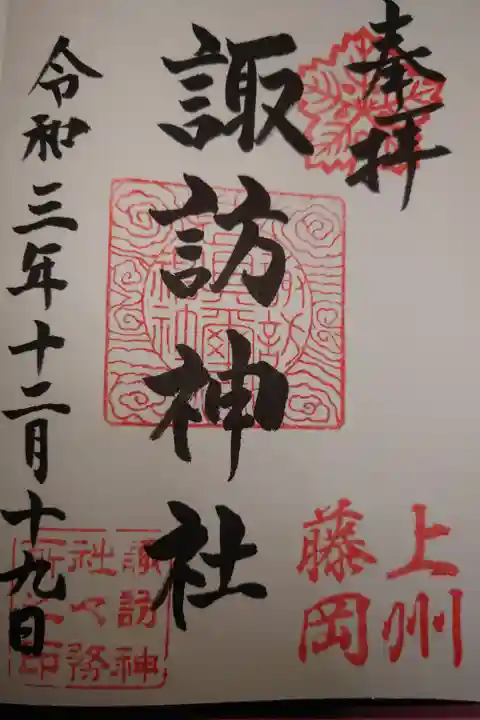 奉拝
上州
藤岡
諏訪神社
令和三年十二月十九日
諏訪神
社々務
所之印